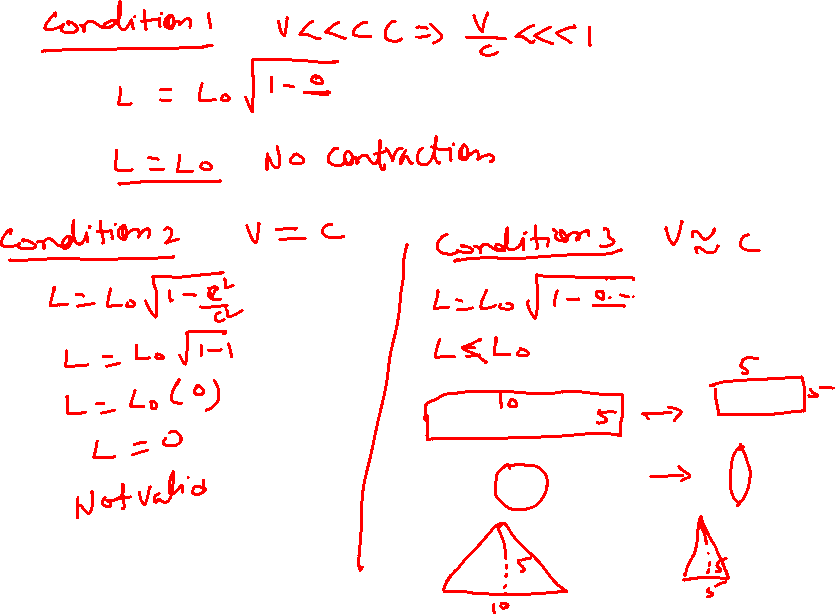 Condition 1 V <<< C ⇒ V/C <<< 1
L = L₀ √(1 - 0)
L = L₀ No contraction
Condition 2 V = C
L = L₀ √(1 - c²/c²)
L = L₀ √(1-1)
L = L₀ (0)
L = 0
Not valid
Condition 3 V ≈ C
L = L₀ √(1 - 0.--)
L ≤ L₀
10 5 → 5 5
→
5 10 5 5